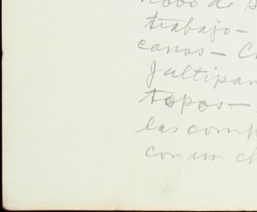 de
trabajo-
canos-
Jaltipan
topos-
las comp
con un ch